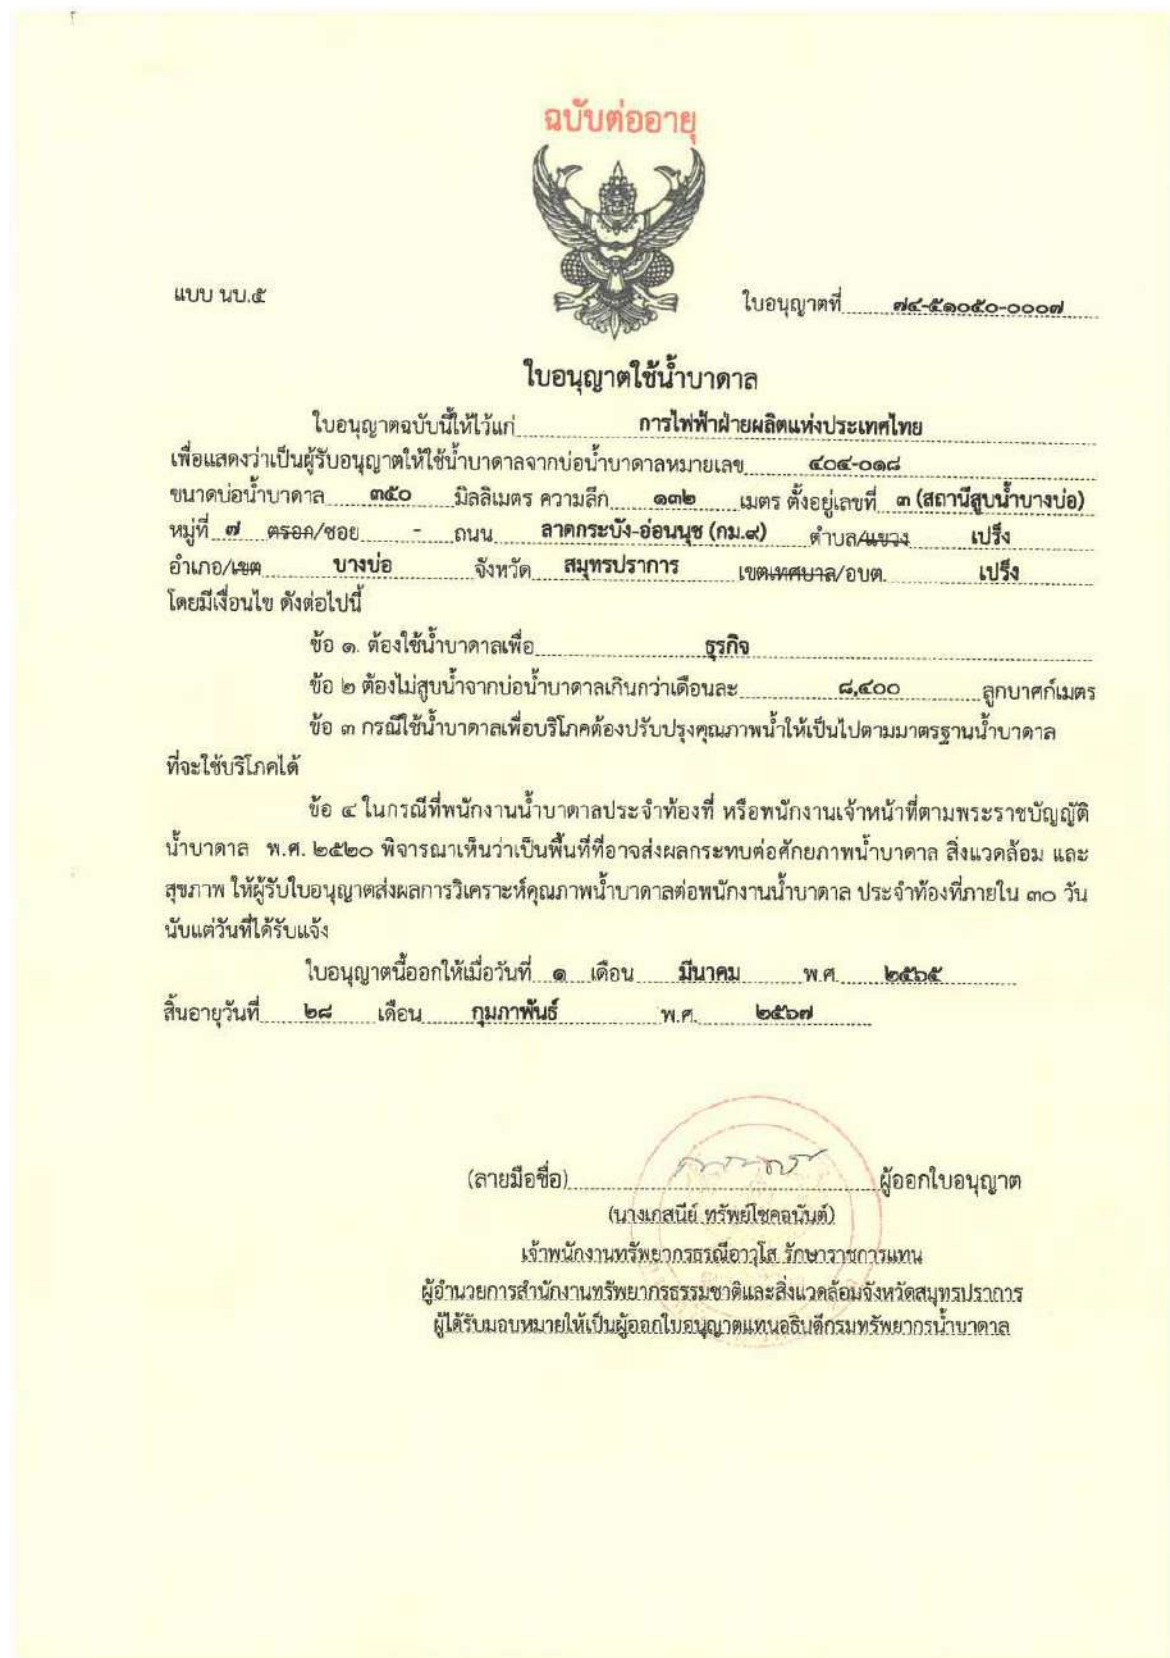 ฉบับต่ออายุ
แบบ นบ.๕
ใบอนุญาตที่ ๗๔-๕๑๐๕๐-๐๐๐๗
ใบอนุญาตใช้น้ำบาดาล
ใบอนุญาตฉบับนี้ให้ไว้แก่ การไฟฟ้าฝ่ายผลิตแห่งประเทศไทย
เพื่อแสดงว่าเป็นผู้รับอนุญาตให้ใช้น้ำบาดาลจากบ่อน้ำบาดาลหมายเลข ๔๐๔-๐๑๘
ขนาดบ่อน้ำบาดาล ๓๕๐ มิลลิเมตร ความลึก ๑๓๒ เมตร ตั้งอยู่เลขที่ ๓ (สถานีสูบน้ำบางบ่อ)
หมู่ที่ ๗ ตรอก/ซอย - ถนน ลาดกระบัง-อ่อนนุช (กม.๙) ตำบล/แขวง เปร็ง
อำเภอ/เขต บางบ่อ จังหวัด สมุทรปราการ เขตเทศบาล/อบต. เปร็ง
โดยมีเงื่อนไข ดังต่อไปนี้
ข้อ ๑. ต้องใช้น้ำบาดาลเพื่อ ธุรกิจ
ข้อ ๒ ต้องไม่สูบน้ำจากบ่อน้ำบาดาลเกินกว่าเดือนละ ๘,๔๐๐ ลูกบาศก์เมตร
ข้อ ๓ กรณีใช้น้ำบาดาลเพื่อบริโภคต้องปรับปรุงคุณภาพน้ำให้เป็นไปตามมาตรฐานน้ำบาดาล
ที่จะใช้บริโภคได้
ข้อ ๔ ในกรณีที่พนักงานน้ำบาดาลประจำท้องที่ หรือพนักงานเจ้าหน้าที่ตามพระราชบัญญัติ
น้ำบาดาล พ.ศ. ๒๕๒๐ พิจารณาเห็นว่าเป็นพื้นที่ที่อาจส่งผลกระทบต่อศักยภาพน้ำบาดาล สิ่งแวดล้อม และ
สุขภาพ ให้ผู้รับใบอนุญาตส่งผลการวิเคราะห์คุณภาพน้ำบาดาลต่อพนักงานน้ำบาดาล ประจำท้องที่ภายใน ๓๐ วัน
นับแต่วันที่ได้รับแจ้ง
ใบอนุญาตนี้ออกให้เมื่อวันที่ ๑ เดือน มีนาคม พ.ศ. ๒๕๖๕
สิ้นอายุวันที่ ๒๘ เดือน กุมภาพันธ์ พ.ศ. ๒๕๖๗
(ลายมือชื่อ) ผู้ออกใบอนุญาต
(นางเกสนีย์ ทรัพย์โชคอนันต์)
เจ้าพนักงานทรัพยากรธรณีอาวุโส รักษาราชการแทน
ผู้อำนวยการสำนักงานทรัพยากรธรรมชาติและสิ่งแวดล้อมจังหวัดสมุทรปราการ
ผู้ได้รับมอบหมายให้เป็นผู้ออกใบอนุญาตแทนอธิบดีกรมทรัพยากรน้ำบาดาล